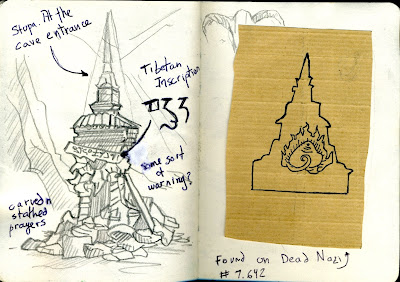 Stupa. At the
cave entrance
Tibetan
Inscription
some sort
of
warning?
carved n
stathed
prayers
Found on Dead Nazi
# 7.642